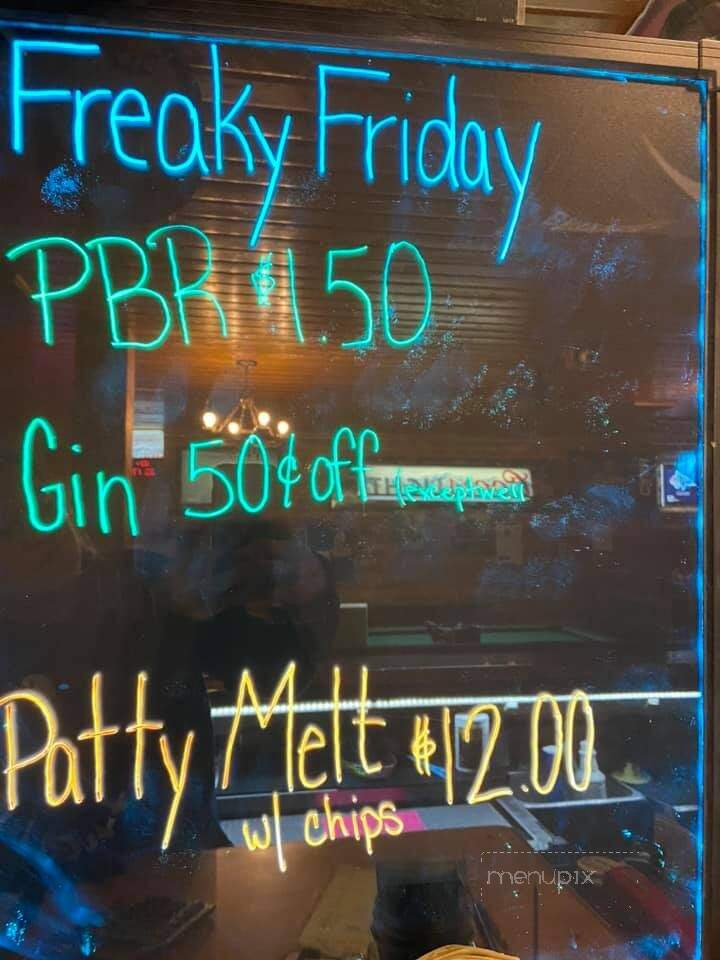 Freaky Friday
PBR $1.50
Gin 50¢ off (except well
Patty Melt $12.00
w/ chips
menupix